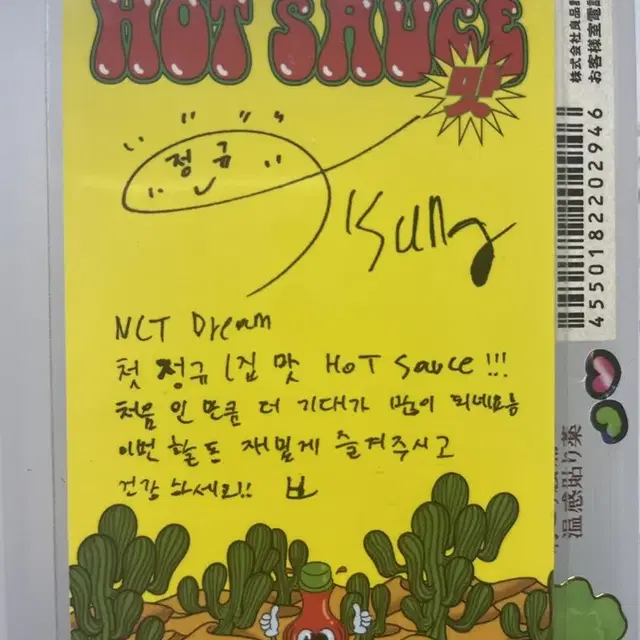 HOT SAUCE
맛
정규
NCT Dream
첫 정규 1집 맛 HOT Sauce !!!
처음 인 만큼 더 기대가 많이 되네요
이번 활동 재밌게 즐겨주시고
건강 하세요!!
株式会社良品
お客様室電
4550182202946
温感貼り薬